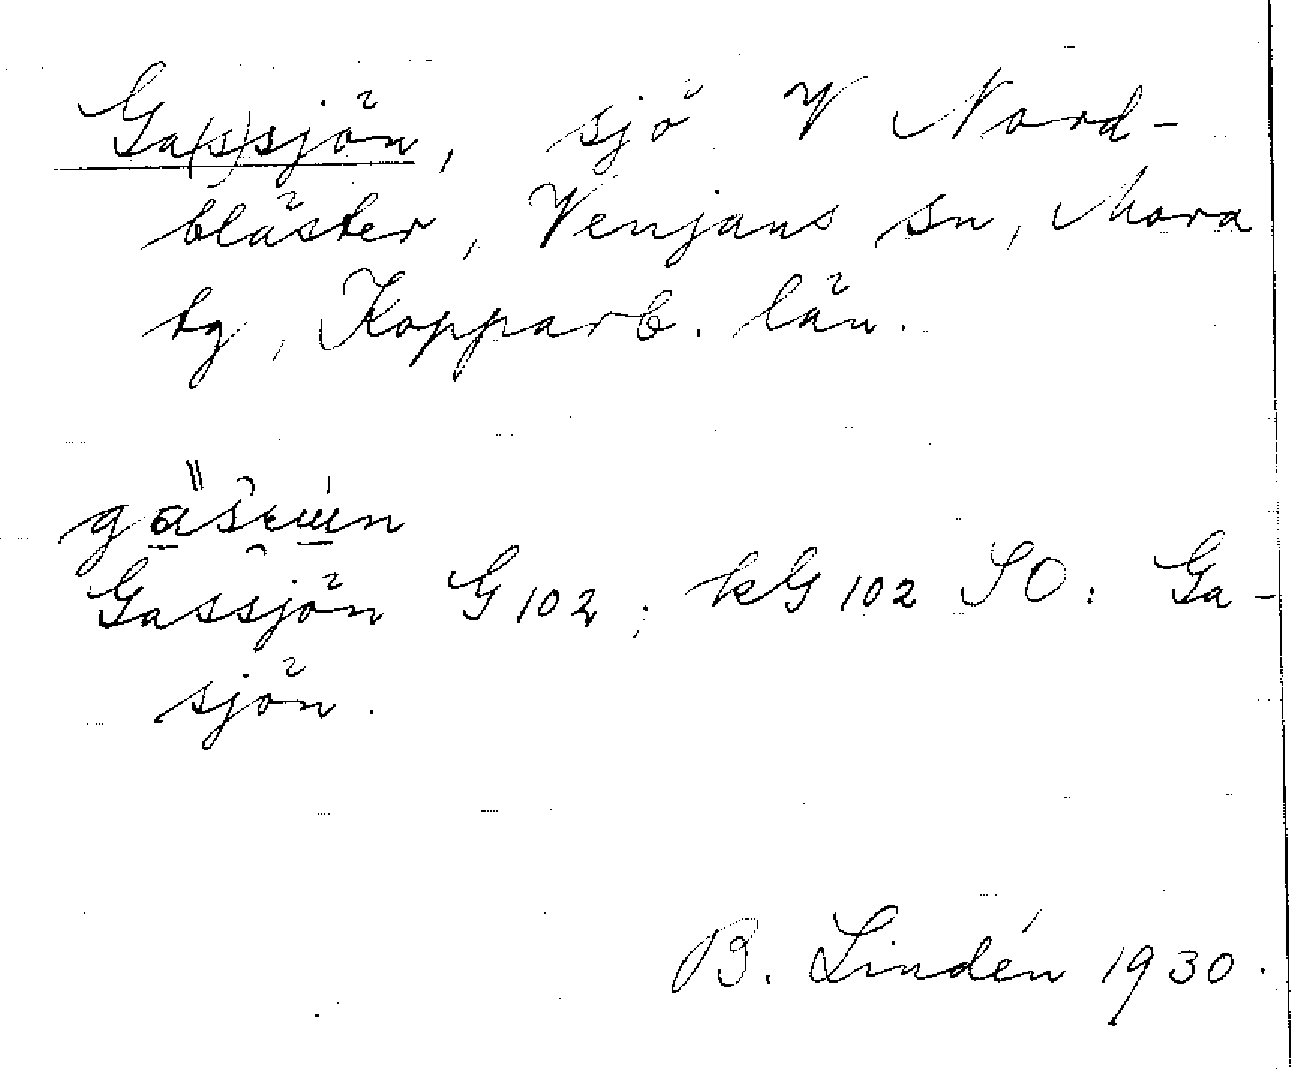 Ga(s)sjön, sjö V Nord-
bläster, Venjans sn, Mora
tg, Kopparb. län.
Gassjön G 102; kG 102 SO: Ga-
sjön.
B. Lindén 1930.